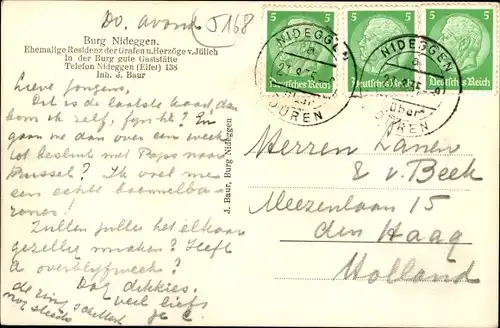 Do. avond 5168
Burg Nideggen.
Ehemalige Residenz der Grafen u. Herzöge v. Jülich
In der Burg gute Gaststätte
Telefon Nideggen (Eifel) 138
Inh. J. Baur
Lieve jongens,
Dit is de laatste kaart, dan
kom ik zelf, fijn hè? En
gaan we dan over een week
tot besluit met Paps naar
Brussel? Ik voel me
een echte boemelba-
rones!
Zullen jullie het elkaar
gezellig maken? Heeft
Dag dikkies,
veel liefs
nog steeds
J. Baur, Burg Nideggen
5 5 5
Deutsches Reich Deutsches Reich Deutsches Reich
NIDEGGEN
a
über
DÜREN
NIDEGGEN
a
über
DÜREN
Herren
E v. Beek
Meezenlaan 15
den Haag
Holland